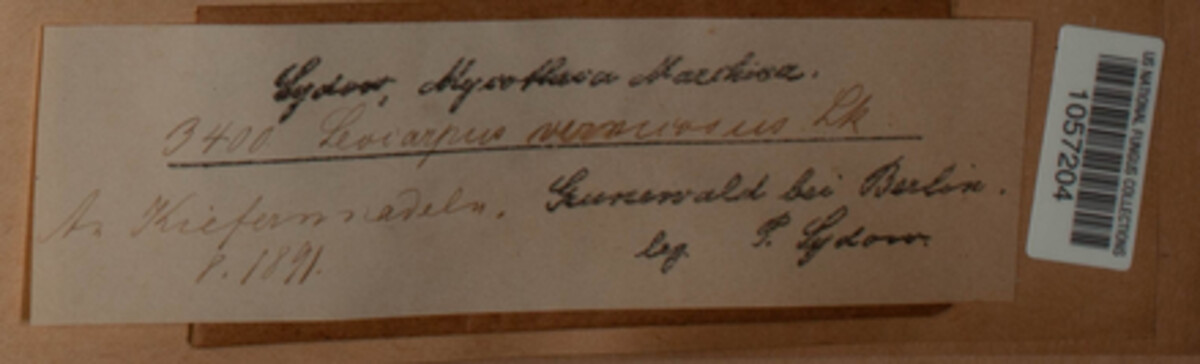 Sydow, Mycotheca Marchica.
3400 Leocarpus vernicosus Lk.
An Kiefernnadeln. Grunewald bei Berlin.
8. 1891. leg. P. Sydow.
US NATIONAL FUNGUS COLLECTIONS
1057204